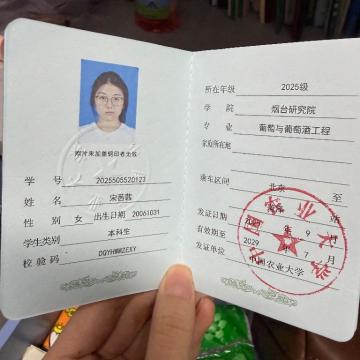 照片未加盖钢印者无效
学 号 2025505520123
姓 名 宋茜茜
性 别 女 出生日期 20061031
学生类别 本科生
校 验 码
所在年级 2025级
学 院 烟台研究院
专 业 葡萄与葡萄酒工程
家庭所在地
乘车区间 北京 至
发证日期 年 9 月
有效期至 2029 年 7 月
发证单位 中国农业大学